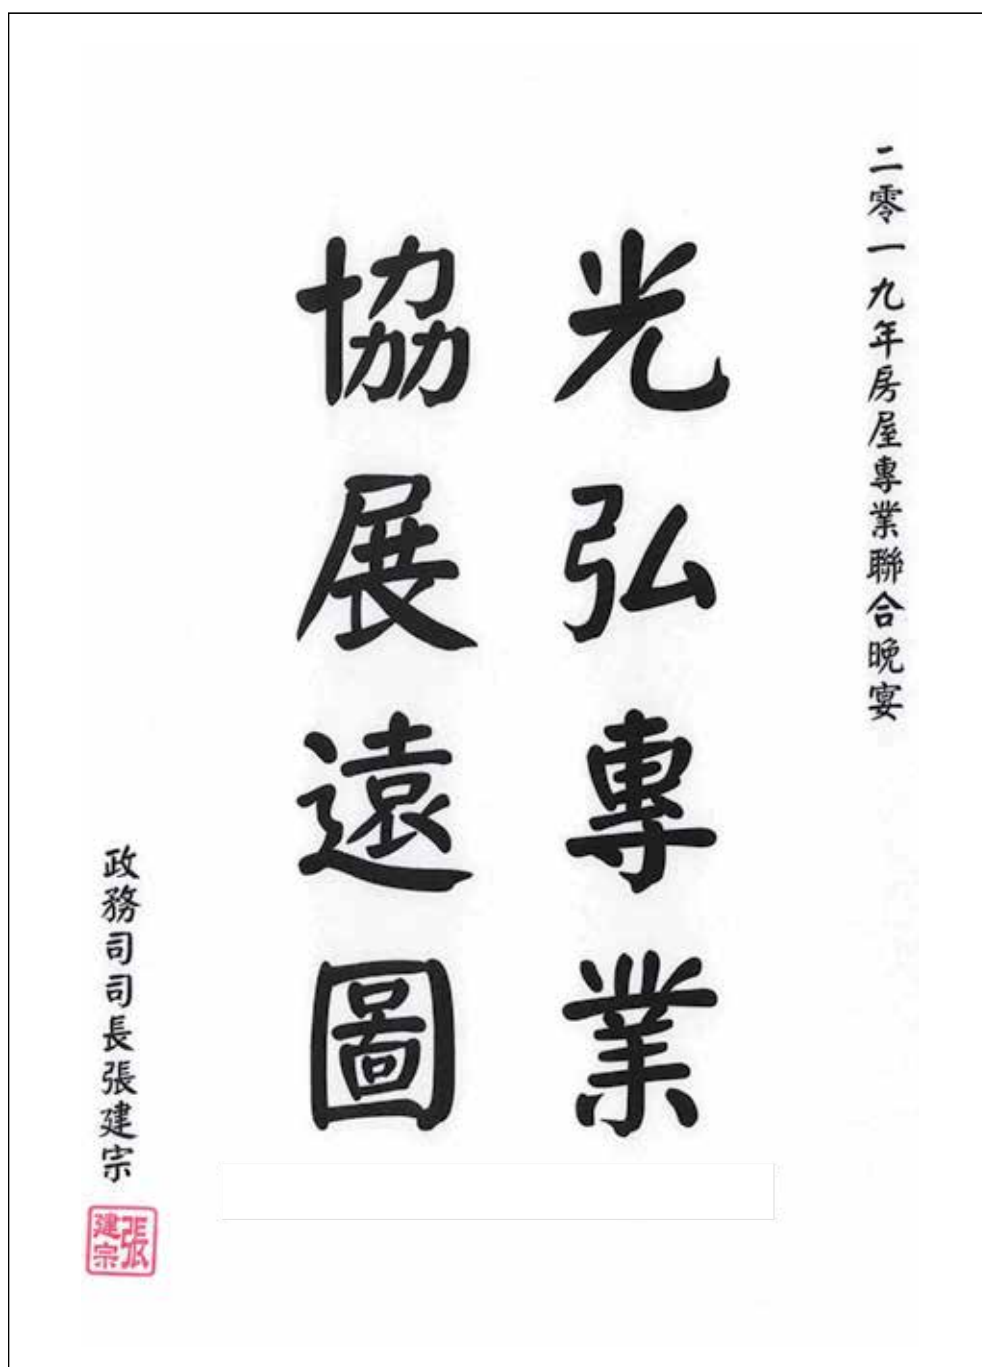 二零一九年房屋專業聯合晚宴
光弘專業
協展遠圖
政務司司長張建宗
張建宗